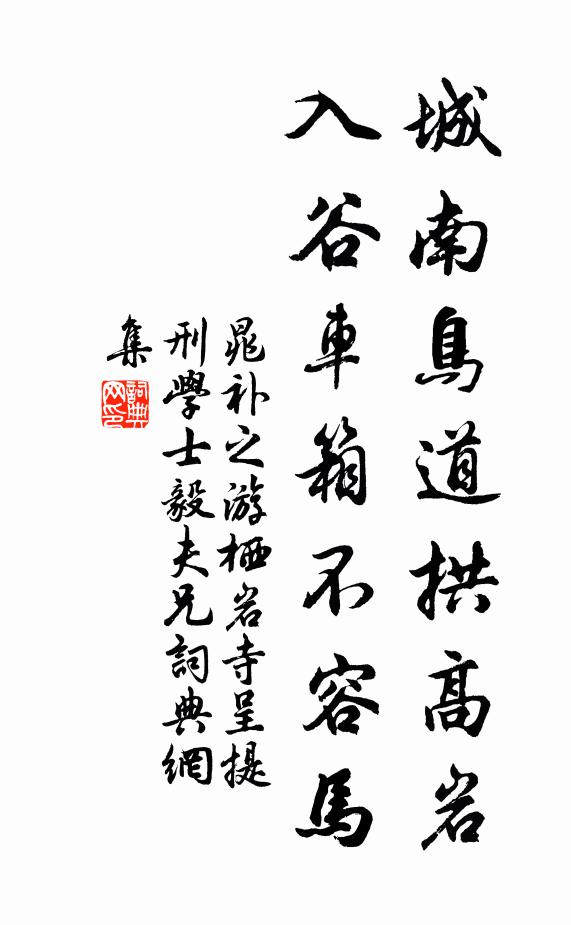 城南鳥道拱高岩
入谷車箱不容馬
晁补之游栖岩寺呈提
刑學士毅夫兄詞典網
集
詞典
网印